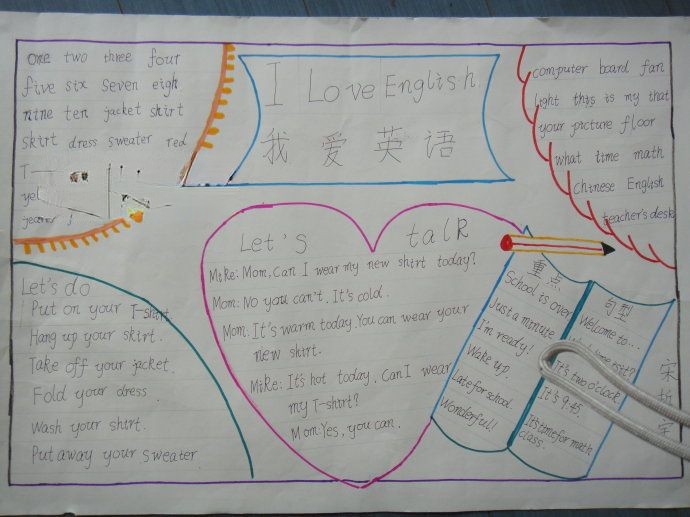 one two three four
five six seven eigh
nine ten jacket shirt
skirt dress sweater red
T
yel
I Love English
我爱英语
computer board fan
light this is my that
your picture floor
what time math
Chinese English
teacher's desk
Let's do
Put on your T-shirt
Hang up your skirt.
Take off your jacket.
Fold your dress
Wash your shirt.
Put away your sweater
Let's talk
Mike: Mom, Can I wear my new shirt today?
Mom: No you can't. It's cold.
Mom: It's warm today. You can wear your
new shirt.
Mike: It's hot today. Can I wear
my T-shirt?
Mom: Yes, you can.
重点
School is over
Just a minute
I'm ready!
Wake up.
Late for school.
Wonderful!
句型
Welcome to....
time is it?
It's two o'clock
It's 9:45.
It's time for math
class.
宋